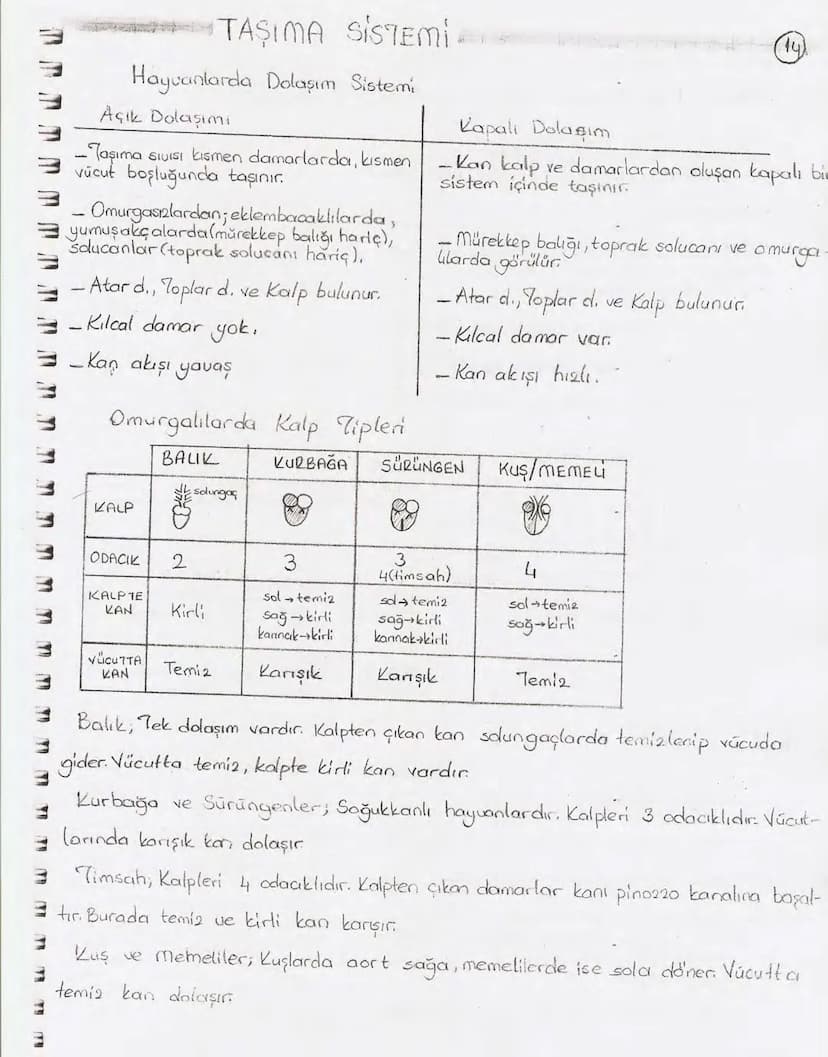 TAŞIMA SİSTEMİ
14
Hayvanlarda Dolaşım Sistemi
Açık Dolaşımı
Kapalı Dolaşım
– Taşıma sıvısı kısmen damarlarda, kısmen
vücut boşluğunda taşınır.
– Omurgasızlardan; eklembacaklılarda,
yumuşakçalarda (mürekkep balığı hariç),
solucanlar (toprak solucanı hariç).
– Atar d., Toplar d. ve Kalp bulunur.
– Kılcal damar yok.
– Kan akışı yavaş
– Kan kalp ve damarlardan oluşan kapalı bir
sistem içinde taşınır.
– Mürekkep balığı, toprak solucanı ve omurga-
lılarda görülür.
– Atar d., Toplar d. ve Kalp bulunur.
– Kılcal damar var.
– Kan akışı hızlı.
Omurgalılarda Kalp Tipleri
BALIK KURBAĞA SÜRÜNGEN KUŞ/MEMELİ
KALP solungaç
ODACIK 2 3 3 4
4(timsah)
KALPTE KAN Kirli
sol→temiz
sağ→kirli
karıncık→kirli
sol→temiz
sağ→kirli
karıncık→kirli
sol→temiz
sağ→kirli
VÜCUTTA KAN Temiz Karışık Karışık Temiz
Balık; Tek dolaşım vardır. Kalpten çıkan kan solungaçlarda temizlenip vücuda
gider. Vücutta temiz, kalpte kirli kan vardır.
Kurbağa ve Sürüngenler; Soğukkanlı hayvanlardır. Kalpleri 3 odacıklıdır. Vücut-
larında karışık kan dolaşır.
Timsah; Kalpleri 4 odacıklıdır. Kalpten çıkan damarlar kanı pinozzo kanalına boşal-
tır. Burada temiz ve kirli kan karışır.
Kuş ve Memeliler; Kuşlarda aort sağa, memelilerde ise sola döner. Vücutta
temiz kan dolaşır.